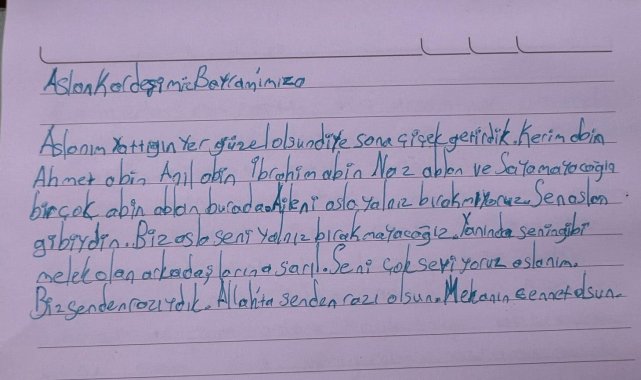 Aslan Kardeşimiz Bayramımıza
Aslanım Yattığın Yer güzel olsun diye sana çiçek getirdik. Kerim abin
Ahmet abin Anıl abin İbrahim abin Naz ablan ve Sayamayacağın
birçok abin ablan burada. Aileni asla yalnız bırakmıyoruz. Sen aslan
gibiydin. Biz asla seni yalnız bırakmayacağız. Yanında senin gibi
melek olan arkadaşlarına sarıl. Seni çok seviyoruz aslanım.
Biz senden razıydık. Allahta senden razı olsun. Mekanın cennet olsun.